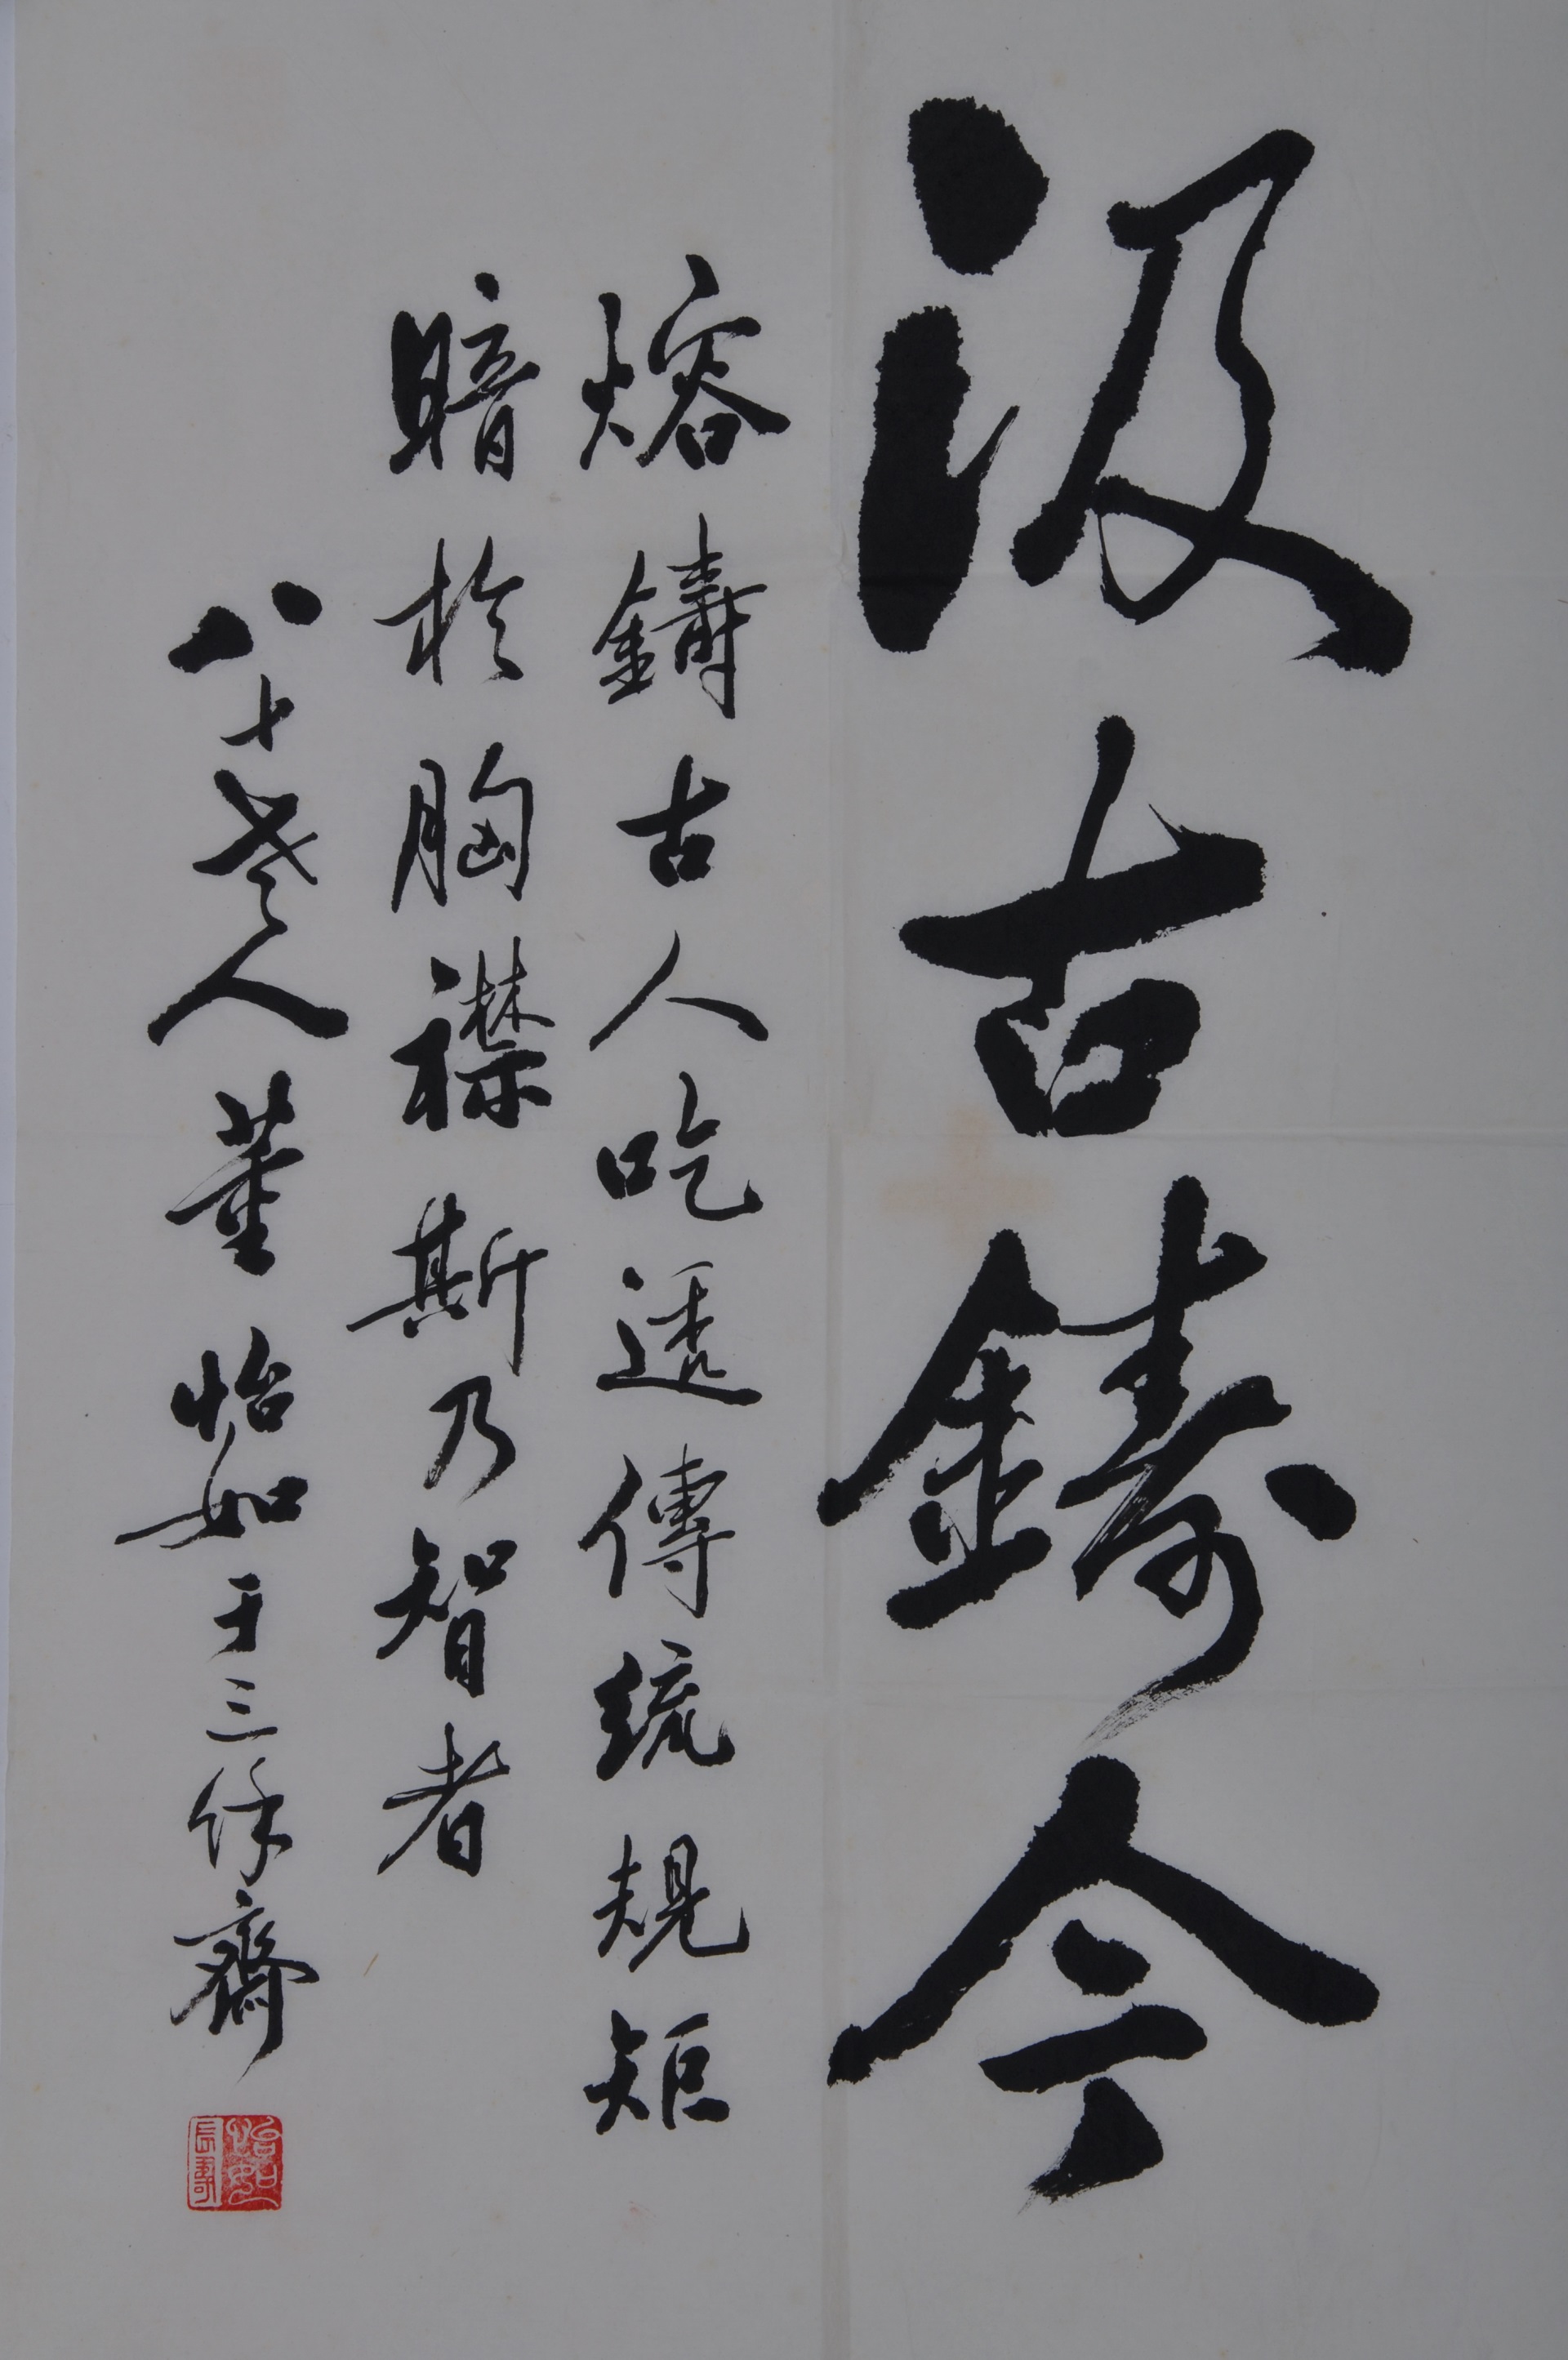 汲古鑄今
熔鑄古人吃透傳統規矩
暗於胸襟斯乃智者
八十老人董怡如于三休齋
怡如
長壽